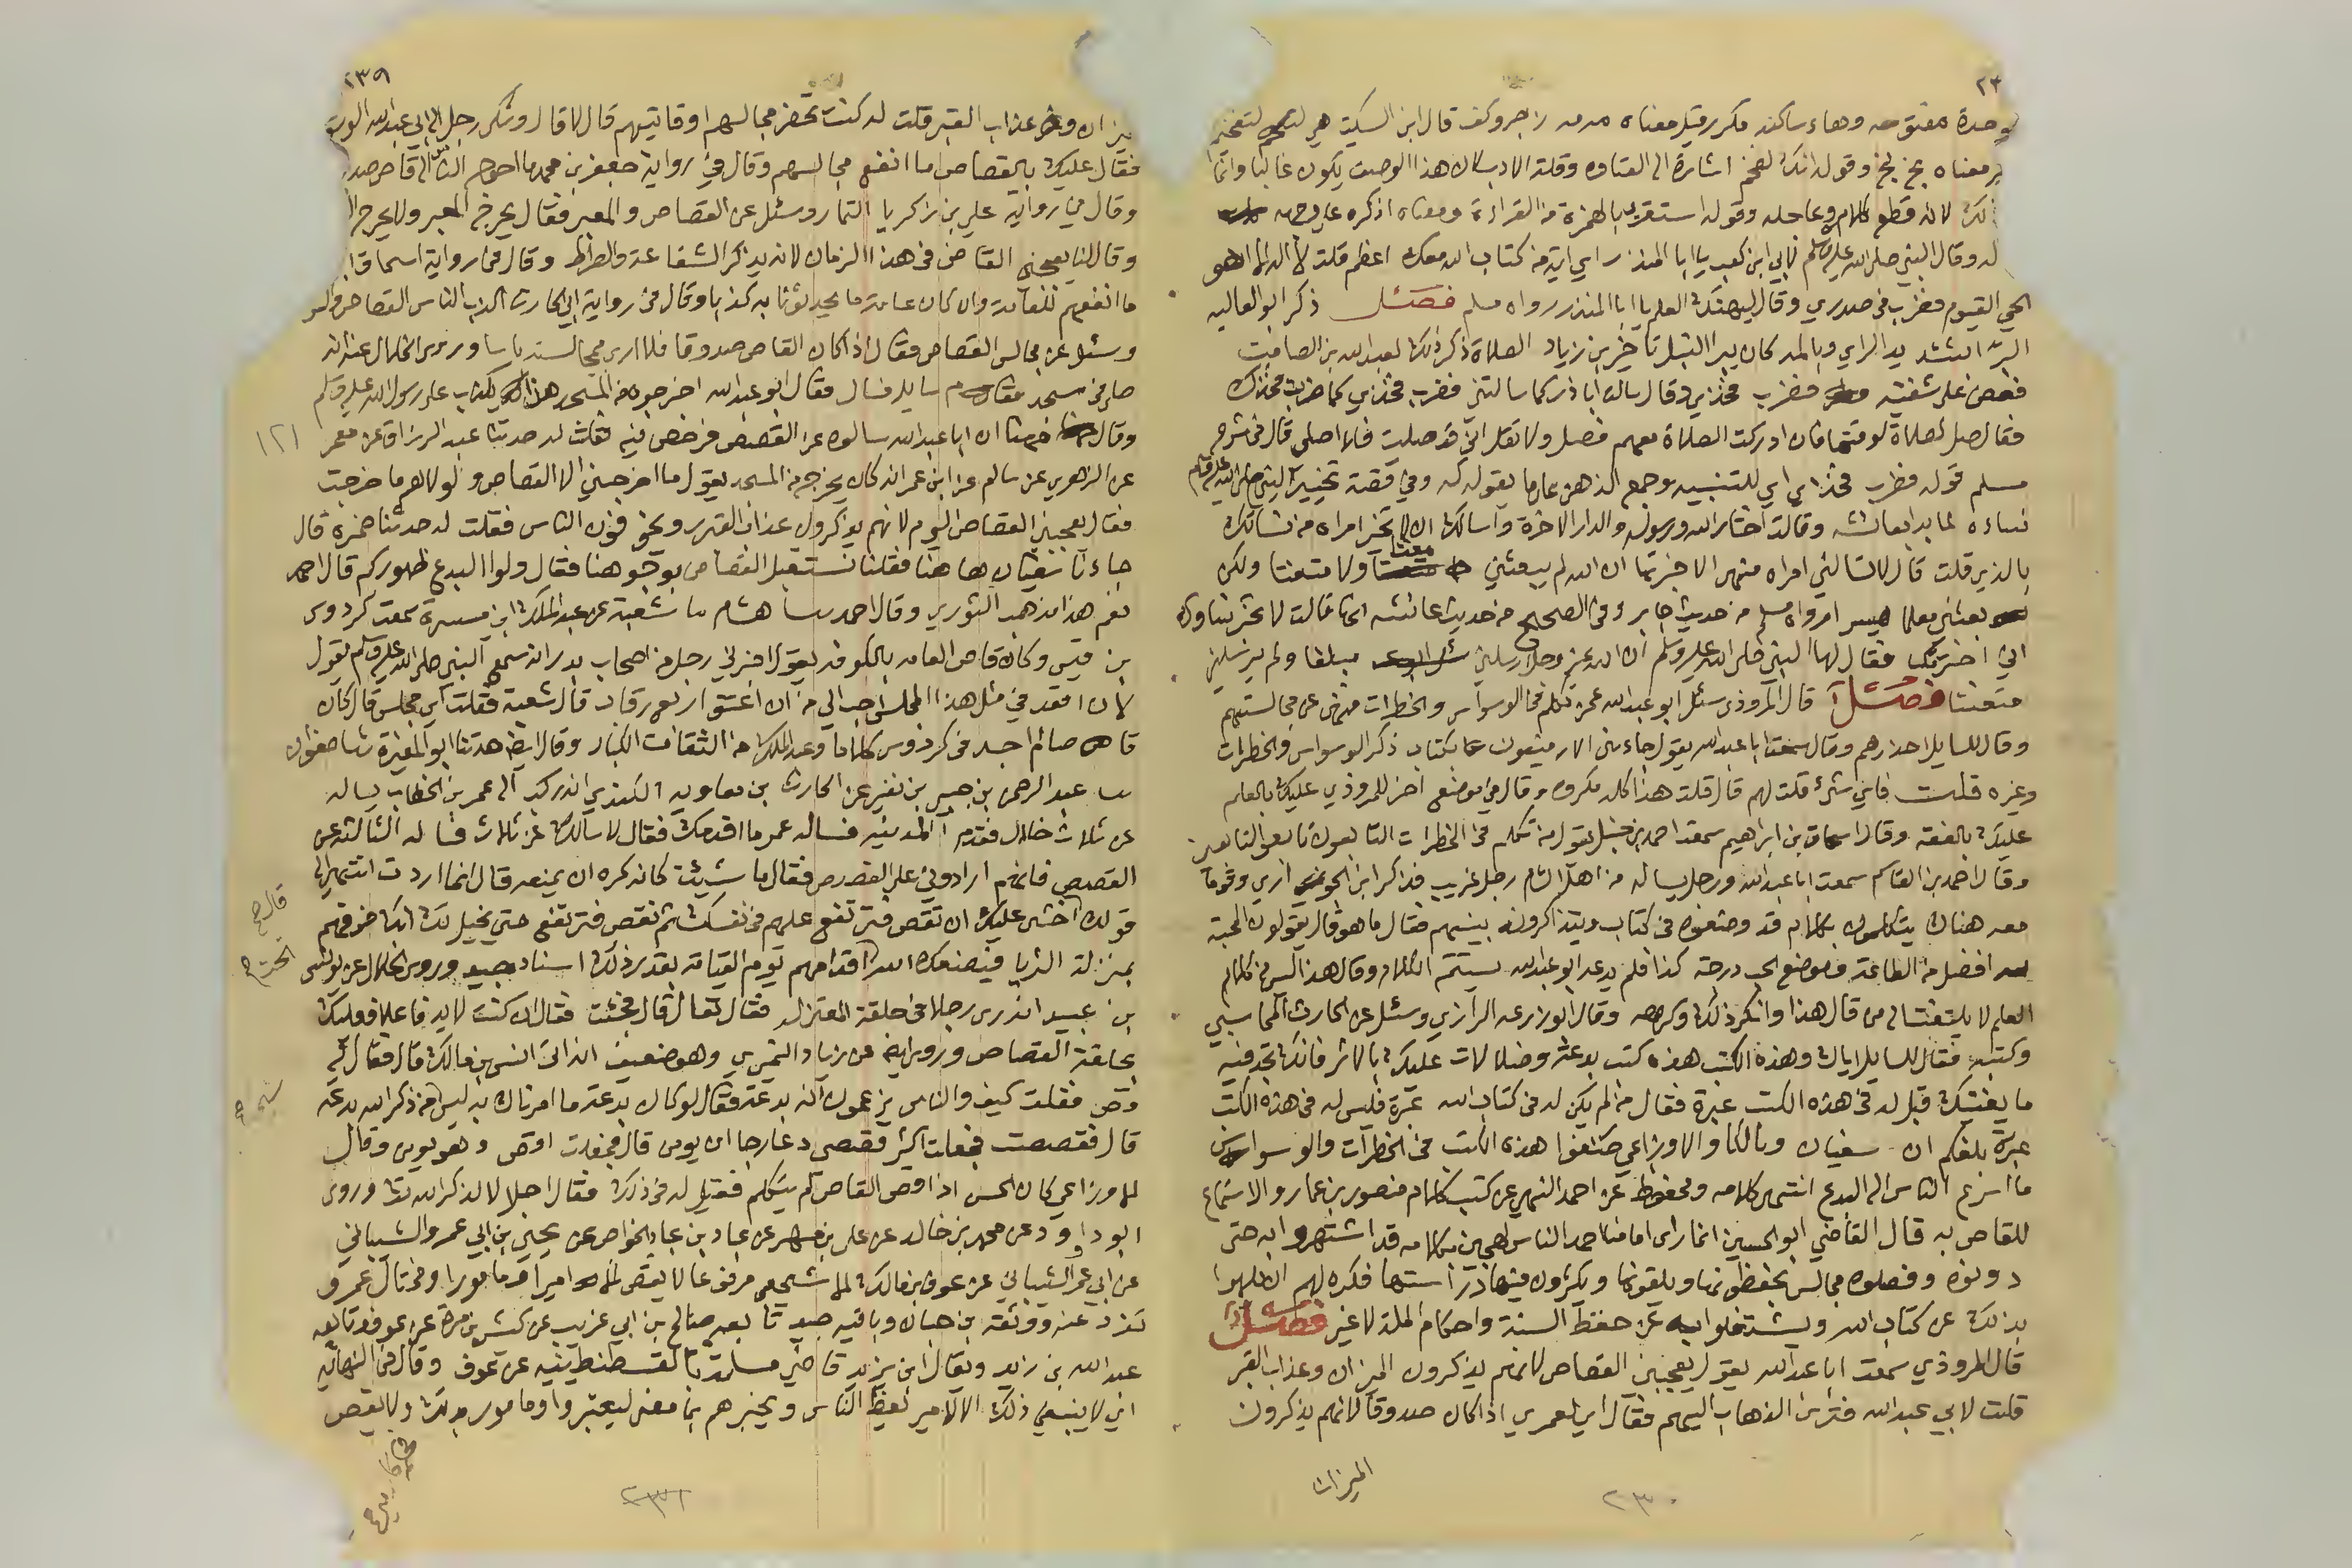 وحدة مفتوحة وهاء ساكنة مكرر قيل معناه مه مه زاجر وكف قال ابن السكيت هي لتفخيم
معناه بخ بخ وقوله انك لضخم اشارة الى الغباوة وقلة الادب لان هذا الوصف يكون غالبا وانما
ذلك لانه قطع كلامه وعاجله وقوله استقرئ بالهمزة من القراءة ومعناه اذكره على وجهه
له وقال النبي صلى الله عليه وسلم لابي ابن كعب يا ابا المنذر اي اية من كتاب الله معك اعظم قلت لا اله الا هو
الحي القيوم فضرب في صدري وقال ليهنك العلم يا ابا المنذر رواه مسلم فصل ذكر ابو العالية
البرا بتشديد الراي وبالمد كان يبرا النبل تاخير بن زياد الصلاة ذكر ذلك لعبد الله بن الصامت
فعض على شفتيه فضرب فخذي وقال سالت ابا ذر كما سالتني فضرب فخذي كما ضربت فخذك
فقال صل الصلاة لوقتها فان ادركت الصلاة معهم فصل ولا تقل اني قد صليت فلا اصلي قال في شرح
مسلم قوله فضرب فخذي اي للتنبيه وجمع الذهن على ما يقوله له وفي قصة تخيير النبي صلى الله عليه وسلم
نساءه لما بدا بعائشة وقالت اختار الله ورسوله والدار الاخرة واسالك ان لا تخبر امراة من نسائك
بالذي قلت قال لا تسالني امراة منهن الا خبرتها ان الله لم يبعثني معنتا ولا متعنتا ولكن
بعثني معلما ميسرا رواه مسلم من حديث جابر وفي الصحيح من حديث عائشة انها قالت لا تخبر نساءك
اني اخترتك فقال لها النبي صلى الله عليه وسلم ان الله عز وجل ارسلني مبلغا ولم يرسلني
متعنتا فصل قال المروذي سئل ابو عبد الله عمن تكلم في الوسواس والخطرات فنهى عن مجالستهم
وقال للسايل احذرهم وقال سمعت ابا عبد الله يقول جاءني الارمنيون بكتاب ذكر الوسواس والخطرات
وغيره قلت فاي شيء قلت لهم قال قلت هذا كله مكروه وقال في موضع اخر للمروذي عليك بالعلم
عليك بالفقه وقال اسحاق بن ابراهيم سمعت احمد بن حنبل يقول من تكلم في الخطرات التابعون تابعوا التابعين
وقال احمد بن القاسم سمعت ابا عبد الله ورجل يساله من اهل الشام رجل غريب فذكر ابن ابي الحواري وقوما
معه هناك يتكلمون بكلام قد وضعوه في كتاب ويتذاكرونه بينهم فقال ما هو قال يقولون المحبة
لله افضل من الطاعة وموضع الحب درجة كذا فلم يدعه ابو عبد الله يستتم الكلام وقال هذا ليس من كلام
العلم لا يلتفت الى من قال هذا وانكر ذلك وكرهه وقال ابو زرعة الرازي وسئل عن الحارث المحاسبي
وكتبه فقال للسايل اياك وهذه الكتب هذه كتب بدعة وضلالات عليك بالاثر فانك تجد فيه
ما يغنيك قيل له في هذه الكتب عبرة فقال من لم يكن له في كتاب الله عبرة فليس له في هذه الكتب
عبرة بلغكم ان سفيان ومالكا والاوزاعي صنفوا هذه الكتب في الخطرات والوسواس
ما اسرع الناس الى البدع انتهى كلامه ومحفوظ عن احمد النهي عن كتب كلام منصور بن عمار والاستماع
للقاص به قال القاضي ابو الحسين انما راى امامنا احمد الناس لهجين بكلامه قد اشتهروا به حتى
دونوه وفصلوه مجالس يحفظونها ويلقونها ويكثرون فيها دراستها فكره لهم ان يلهوا
بذلك عن كتاب الله ويشتغلوا به عن حفظ السنة واحكام الملة لا غير فصل
قال المروذي سمعت ابا عبد الله يقول يعجبني القصاص لانهم يذكرون الميزان وعذاب القبر
قلت لابي عبد الله فترى الذهاب اليهم فقال اي لعمري اذا كان صدوقا لانهم يذكرون
الميزان
٢٣٠
٢٣٩
يزان وعذاب القبر قلت له كنت تحضر مجالسهم او تاتيهم قال لا قال وشكى رجل الى ابي عبد الله الوسوسة
فقال عليك بالقصاص ما انفع مجالسهم وقال في رواية جعفر بن محمد ما احوج الناس الى قاص صدوق
وقال في رواية علي بن زكريا التمار وسئل عن القصاص والمعبر فقال يخرج المعبر ولا يخرج
وقال لنا يعجبني القاص في هذا الزمان لانه يذكر الشفاعة والصراط وقال في رواية اسحاق
ما انفعهم للعامة وان كان عامة ما يحدثونا به كذبا وقال في رواية ابي الحارث اكذب الناس القصاص
وسئل عن مجالس القصاص فقال اذا كان القاص صدوقا فلا ارى بمجالسته باسا وروى الخلال عنه انه
صلى في مسجد فقام سايل فسال فقال ابو عبد الله اخرجوه من المسجد هذا يكذب على رسول الله صلى الله عليه وسلم
وقال ان ابا عبد الله سالوه عن القصص فرخص فيه فقلت له حدثنا عبد الرزاق عن معمر
عن الزهري عن سالم عن ابن عمر انه كان يخرج من المسجد يقول ما اخرجني الا القصاص ولولاهم ما خرجت
فقال يعجبني القصاص اليوم لانهم يذكرون عذاب القبر ويخوفون الناس فقلت له حدثنا ضمرة قال
جاءنا سفيان ها هنا فقلنا نستقبل القصاص بوجوهنا فقال ولوا البدع ظهوركم قال احمد
نعم هذا مذهب الثوري وقال احمد ثنا هشام ثنا شعبة عن عبد الملك ابن ميسرة سمعت كردوس
بن قيس وكان قاص العامة بالكوفة يقول اخبرني رجل من اصحاب بدر انه سمع النبي صلى الله عليه وسلم يقول
لان اقعد في مثل هذا المجلس احب الي من ان اعتق اربع رقاب قال شعبة فقلت اي مجلس قال كان
قاصا وعبد الملك من الثقات الكبار وقال ايضا حدثنا ابو المغيرة ثنا صفوان
ثنا عبد الرحمن بن جبير بن نفير عن الحارث بن معاوية الكندي انه ركب الى عمر بن الخطاب يساله
عن ثلاث خلال فقدم المدينة فساله عمر ما اقدمك فقال لاسالك عن ثلاث فساله الثالثة عن
القصص فانهم ارادوني على القصص فقال ما شيت كانه كره ان يمنعه قال انما اردت انتهي الى
قولك اخشى عليك ان تقص فترتفع عليهم في نفسك ثم تقص فترتفع حتى يخيل لك انك فوقهم
بمنزلة الثريا فيضعك الله تحت اقدامهم يوم القيامة بقدر ذلك اسناد جيد وروى الخلال عن يونس
بن عبيد انه رى رجلا في حلقة المعتزلة فقال تعال قال فجئت فقال ان كنت لا بد فاعلا فعليك
بحلقة القصاص وروي ايضا عن زياد النميري وهو ضعيف انه اتى انس بن مالك قال فقال لي
قص فقلت كيف والناس يزعمون انه بدعة فقال لو كان بدعة ما امرناك به ليس من ذكر الله بدعة
قال فقصصت فجعلت اكثر قصصي دعا رجا ان يومن قال فجعلت اقص وهو يومن وقال
الاوزاعي كان الحسن اذا قص القاص لم يتكلم فقيل له في ذلك فقال اجلالا لذكر الله تعالى وروى
ابو داود عن محمود بن خالد عن علي بن مسهر عن عباد بن عباد الخواص عن يحيى بن ابي عمرو الشيباني
عن ابي عمر الشيباني عن عوف بن مالك الاشجعي مرفوعا لا يقص الا امير او مامور او مختال عمرو
تفرد عنه ووثقه بن حبان وباقيه جيد تابعه صالح بن ابي غريب عن كثير بن مرة عن عوف وتابعه
عبد الله بن زيد ويقال ابن يزيد قاضي مسلمة بالقسطنطينية عن عوف وقال في النهاية
اي لا ينبغي ذلك الا لامير يعظ الناس ويخبرهم بما مضى ليعتبروا او مامور بذلك ولا يقص
١٢١
قال صح
تحت
٢٣١